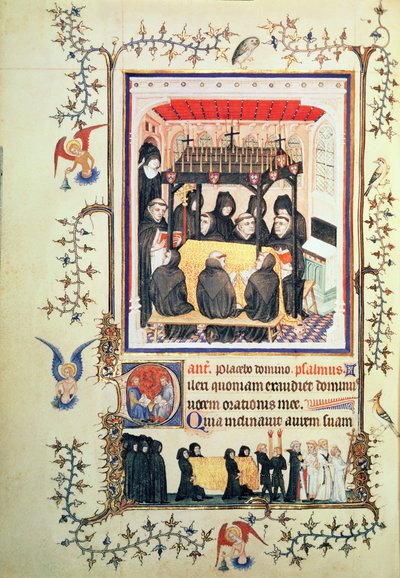 ant. Placebo domino. psalmus.
Dilexi quoniam exaudiet dominus
uocem orationis mee.
Quia inclinauit aurem suam